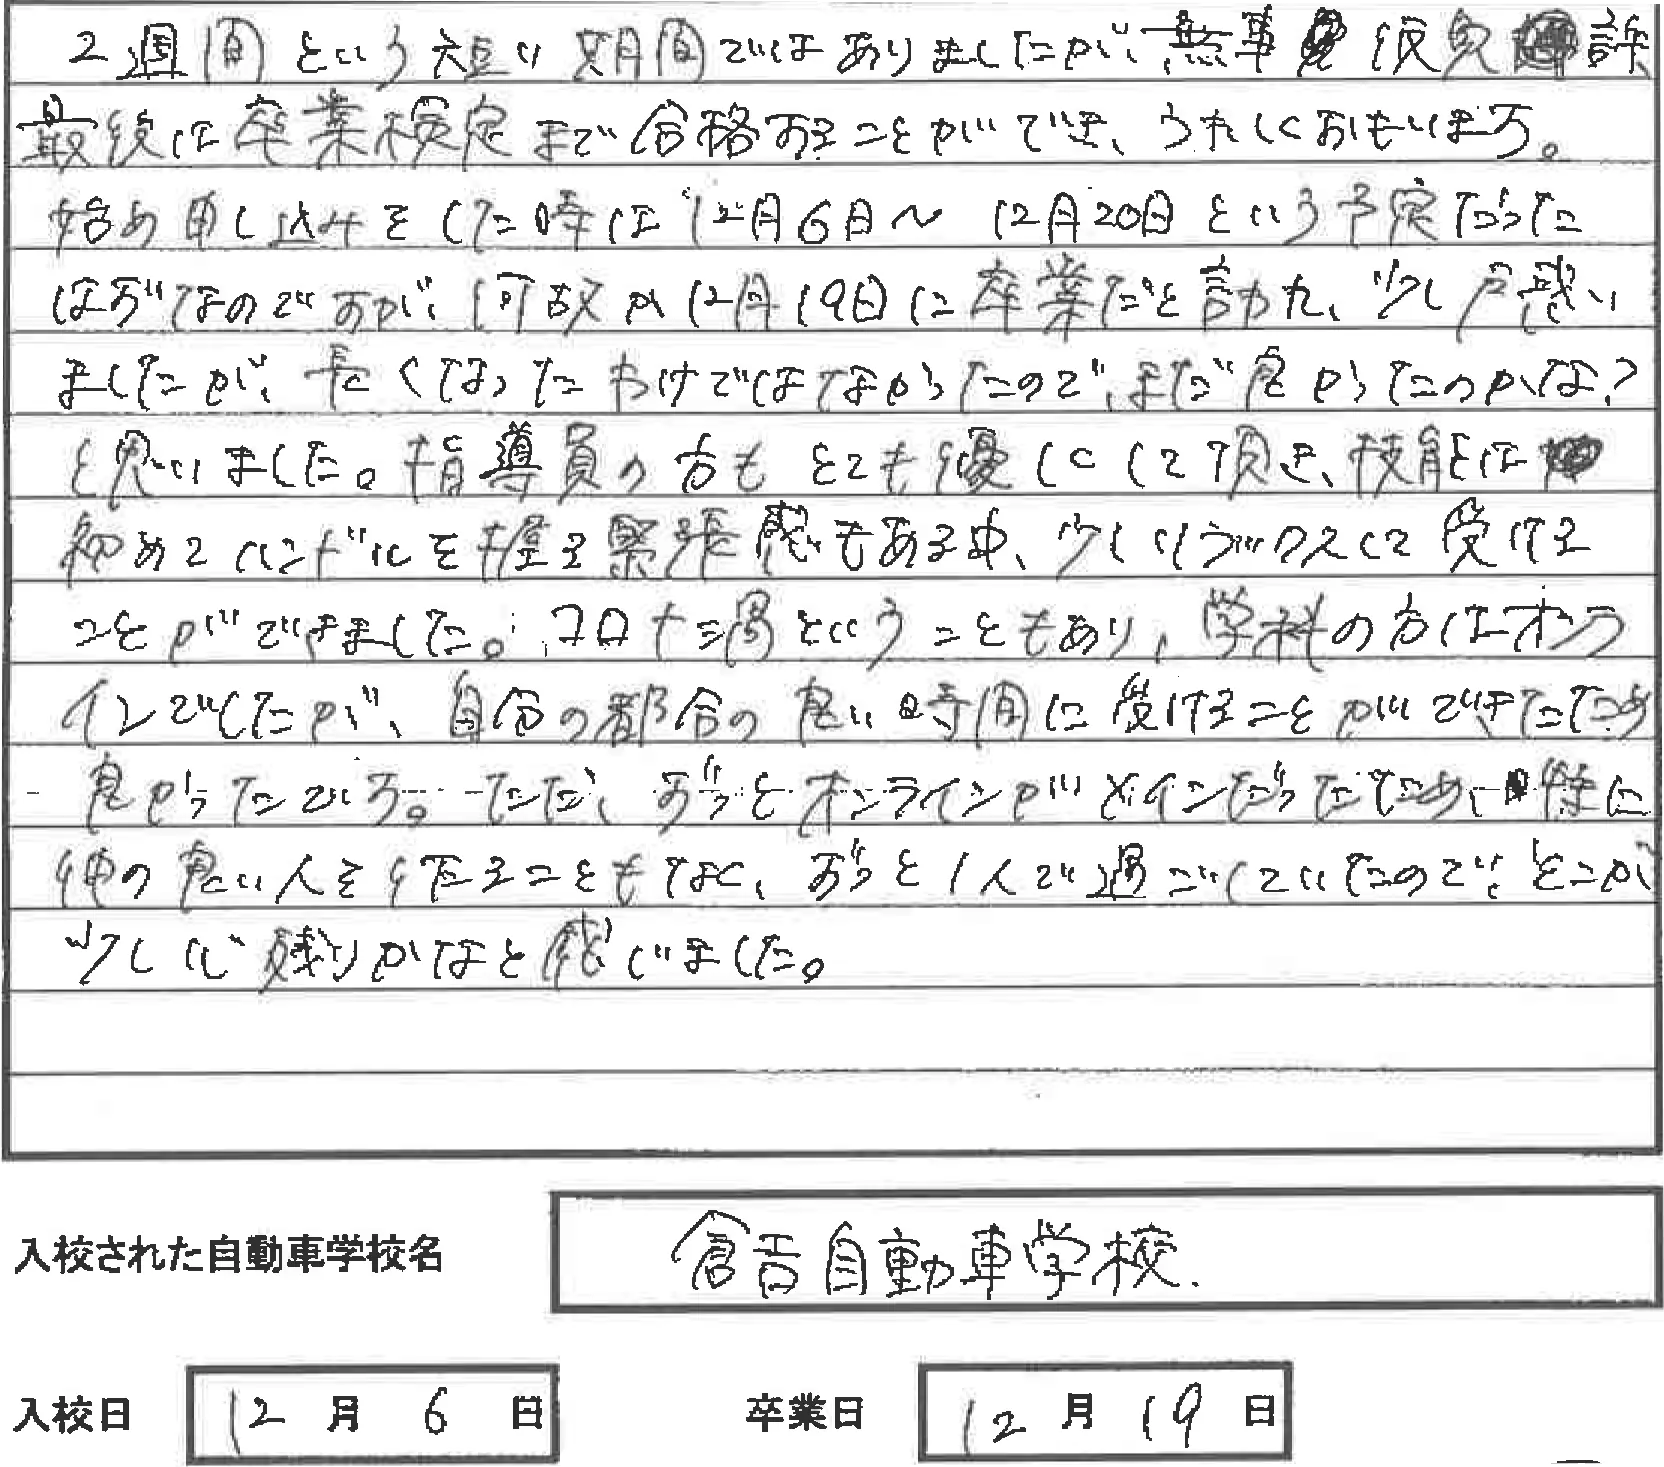 2週間という短い期間ではありましたが、無事仮免許
最後は卒業検定まで合格することができ、うれしくおもいます。
始め申し込みをした時は12月6日～12月20日という予定だった
はずなのですが、何故か12月19日に卒業だと言われ、少し戸惑い
ましたが、長くなったわけではなかったので、まだ良かったのかな？
と思いました。指導員の方もとても優しくして頂き、技能は
初めてハンドルを握る緊張感もある中、少しリラックスして受ける
ことができました。コロナ渦ということもあり、学科の方はオンラ
インでしたが、自分の都合の良い時間に受けることができたため
良かったです。ただ、ずっとオンラインがメインだったため、特に
仲の良い人を作ることもなく、ずっと1人で過ごしていたので、そこが
少し心残りかなと感じました。
入校された自動車学校名 倉吉自動車学校.
入校日 12月6日 卒業日 12月19日